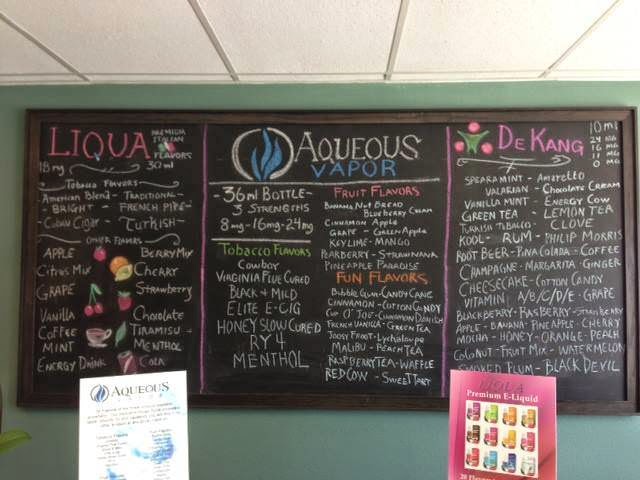 LIQUA
PREMIUM
ITALIAN
FLAVORS
18mg 30ml
Tobacco Flavors
American Blend - TRADITIONAL-
- BRIGHT - FRENCH PIPE-
Cuban Cigar - TURKISH-
OTHER FLAVORS
APPLE BERRY MIX
Citrus Mix CHERRY
GRAPE Strawberry
Vanilla Chocolate
COFFEE TIRAMISU
MINT MENTHOL
ENERGY DRINK Cola
AQUEOUS
VAPOR
-36ml BOTTLE-
3 STRENGTHS
8mg-16mg-24mg
TOBACCO FLAVORS
COWBOY
VIRGINIA FLUE CURED
BLACK & MILD
ELITE E-CIG
HONEY SLOW CURED
RY4
MENTHOL
FRUIT FLAVORS
BANANA NUT BREAD
BLUEBERRY CREAM
CINNAMON APPLE
GRAPE - GREEN APPLE
KEYLIME - MANGO
PEARBERRY - STRAWNANA
PINEAPPLE PARADISE
FUN FLAVORS
BUBBLE GUM - CANDY CANE
CINNAMON - COTTON CANDY
CUP O' JOE - CINNAMON DANISH
FRENCH VANILLA - GREEN TEA
JUICY FROOT - LYCHALOUPE
MALIBU - PEACH TEA
RASPBERRY TEA - WAFFLE
RED COW - SWEETTART
DEKANG
10ml
24 MG
16 MG
11 MG
0 MG
SPEARAMINT - Amaretto
VALARIAN - Chocolate Cream
VANILLA MINT - ENERGY COW
GREEN TEA - LEMON TEA
TURKISH TOBACCO - CLOVE
KOOL - RUM - PHILIP MORRIS
ROOT BEER - PINA COLADA - COFFEE
CHAMPAGNE - MARGARITA - GINGER
CHEESECAKE - COTTON CANDY
VITAMIN A/B/C/D/E - GRAPE
BLACKBERRY - RASBERRY - STRAWBERRY
APPLE - BANANA - PINEAPPLE - CHERRY
MOCHA - HONEY - ORANGE - PEACH
COCONUT - FRUIT MIX - WATERMELON
SMOKED PLUM - BLACK DEVIL
AQUEOUS
VAPOR
LIQUA
Premium E-Liquid